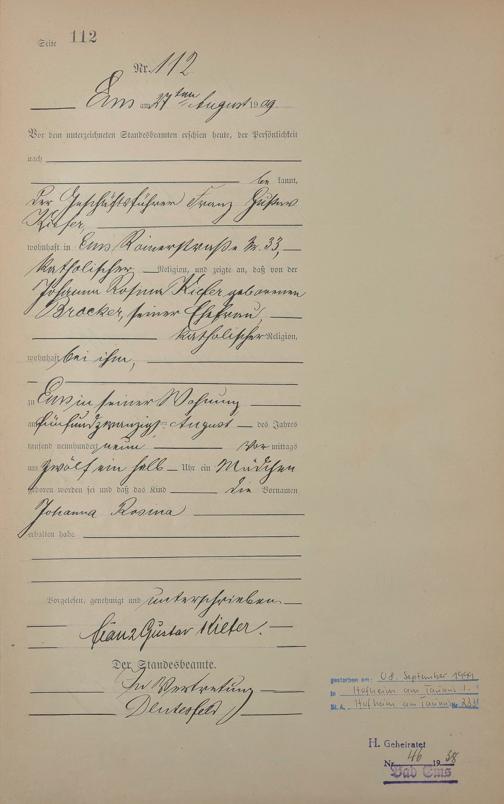 Seite 112
Nr. 112
Ems am 27ten August 1909
Vor dem unterzeichneten Standesbeamten erschien heute, der Persönlichkeit
nach
be kannt,
der Geschäftsführer Franz Gustav
Kiefer,
wohnhaft in Ems Römerstraße Nr. 33,
katholischer Religion, und zeigte an, daß von der
Johanna Rosina Kiefer geborenen
Brocker, seiner Ehefrau,
katholischer Religion,
wohnhaft bei ihm,
zu Ems in seiner Wohnung
am fünfundzwanzigsten August des Jahres
tausend neunhundert neun Vor mittags
um zwölf ein halb Uhr ein Mädchen
geboren worden sei und daß das Kind die Vornamen
Johanna Rosina
erhalten habe.
Vorgelesen, genehmigt und unterschrieben
Franz Gustav Kiefer.
Der Standesbeamte.
In Vertretung
gestorben am: 08. September
in Hofheim am Taunus
St. A. Hofheim am Taunus Nr.
H. Geheiratet
Nr. 46 1938
Bad Ems